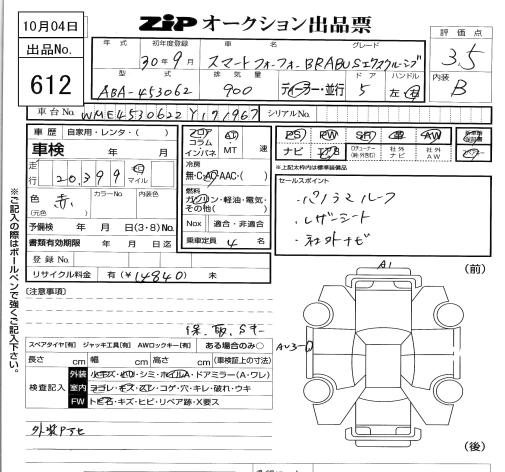 10月04日
ZIP オークション出品票
出品No. 612
年式 初年度登録 車名 グレード
30年9月 スマートフォーフォー BRABUSエクスクルーシブ
型式 排気量 ドア ハンドル
ABA-453062 900 ディーラー・並行 5 左・右
評価点 3.5
内装 B
車台No. WME4530622Y171967 シリアルNo.
車歴 自家用・レンタ・( )
車検 年 月
走行 20,399 km マイル
色 赤 (元色) カラーNo. 内装色
予備検 年 月 日(3・8)No.
書類有効期限 年 月 日迄
登録No.
リサイクル料金 有(¥14840) 未
フロア コラム インパネ AT MT 速
冷房
無・C・AC・AAC・( )
燃料
ガソリン・軽油・電気・その他( )
Nox 適合・非適合
乗車定員 4 名
PS PW SR 革 AW
ナビ 社外ナビ 社外AW
※上記太枠内は標準装備品
セールスポイント
・パノラマルーフ
・レザーシート
・社外ナビ
※ご記入の際はボールペンで強くご記入下さい。
(注意事項)
保、取、Sキー
スペアタイヤ[有] ジャッキ工具[有] AWロックキー[有] ある場合のみ〇
長さ cm 幅 cm 高さ cm (車検証上の寸法)
検査記入
外装 小キズ・ヒリ・シミ・ホイルA・ドアミラー(A・ワレ)
室内 ヨゴレ・キズ・スレ・コゲ・穴・キレ・破れ・ウキ
FW トビ石・キズ・ヒビ・リペア跡・X要ス
(前)
A1
(後)